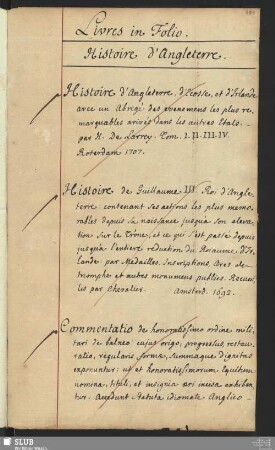 Livres in Folio.
Histoire d'Angleterre.
Histoire d'Angleterre, d'Ecosse, et d'Irlande
avec un Abregé des evenemens les plus re-
marquables arrivés dans les autres Etats.
par M. De Larrey. Tom. I. II. III. IV.
Roterdam 1707.
Histoire de Guillaume III. Roi d'Angle-
terre contenant ses actions les plus memo-
rables depuis sa naissance jusqu'a son eleva-
tion sur le Trône, et ce qui s'est passé depuis
jusqu'a l'entiere reduction du Royaume d'Ir-
lande. par Medailles. Inscriptions, Arcs de
triomphe et autres monumens publics. Recueil-
lis par Chevalier. Amsterd. 1692.
Commentatio de honoratissimo ordine mili-
tari de balneo cujus origo, progressus, restau-
ratio, regularis forma, summaque dignitas
exponuntur: uti et honoratissimorum Equitum
nomina, tituli, et insignia æri incisa exhiben-
tur. Accedunt Statuta idiomate Anglico -
SLUB